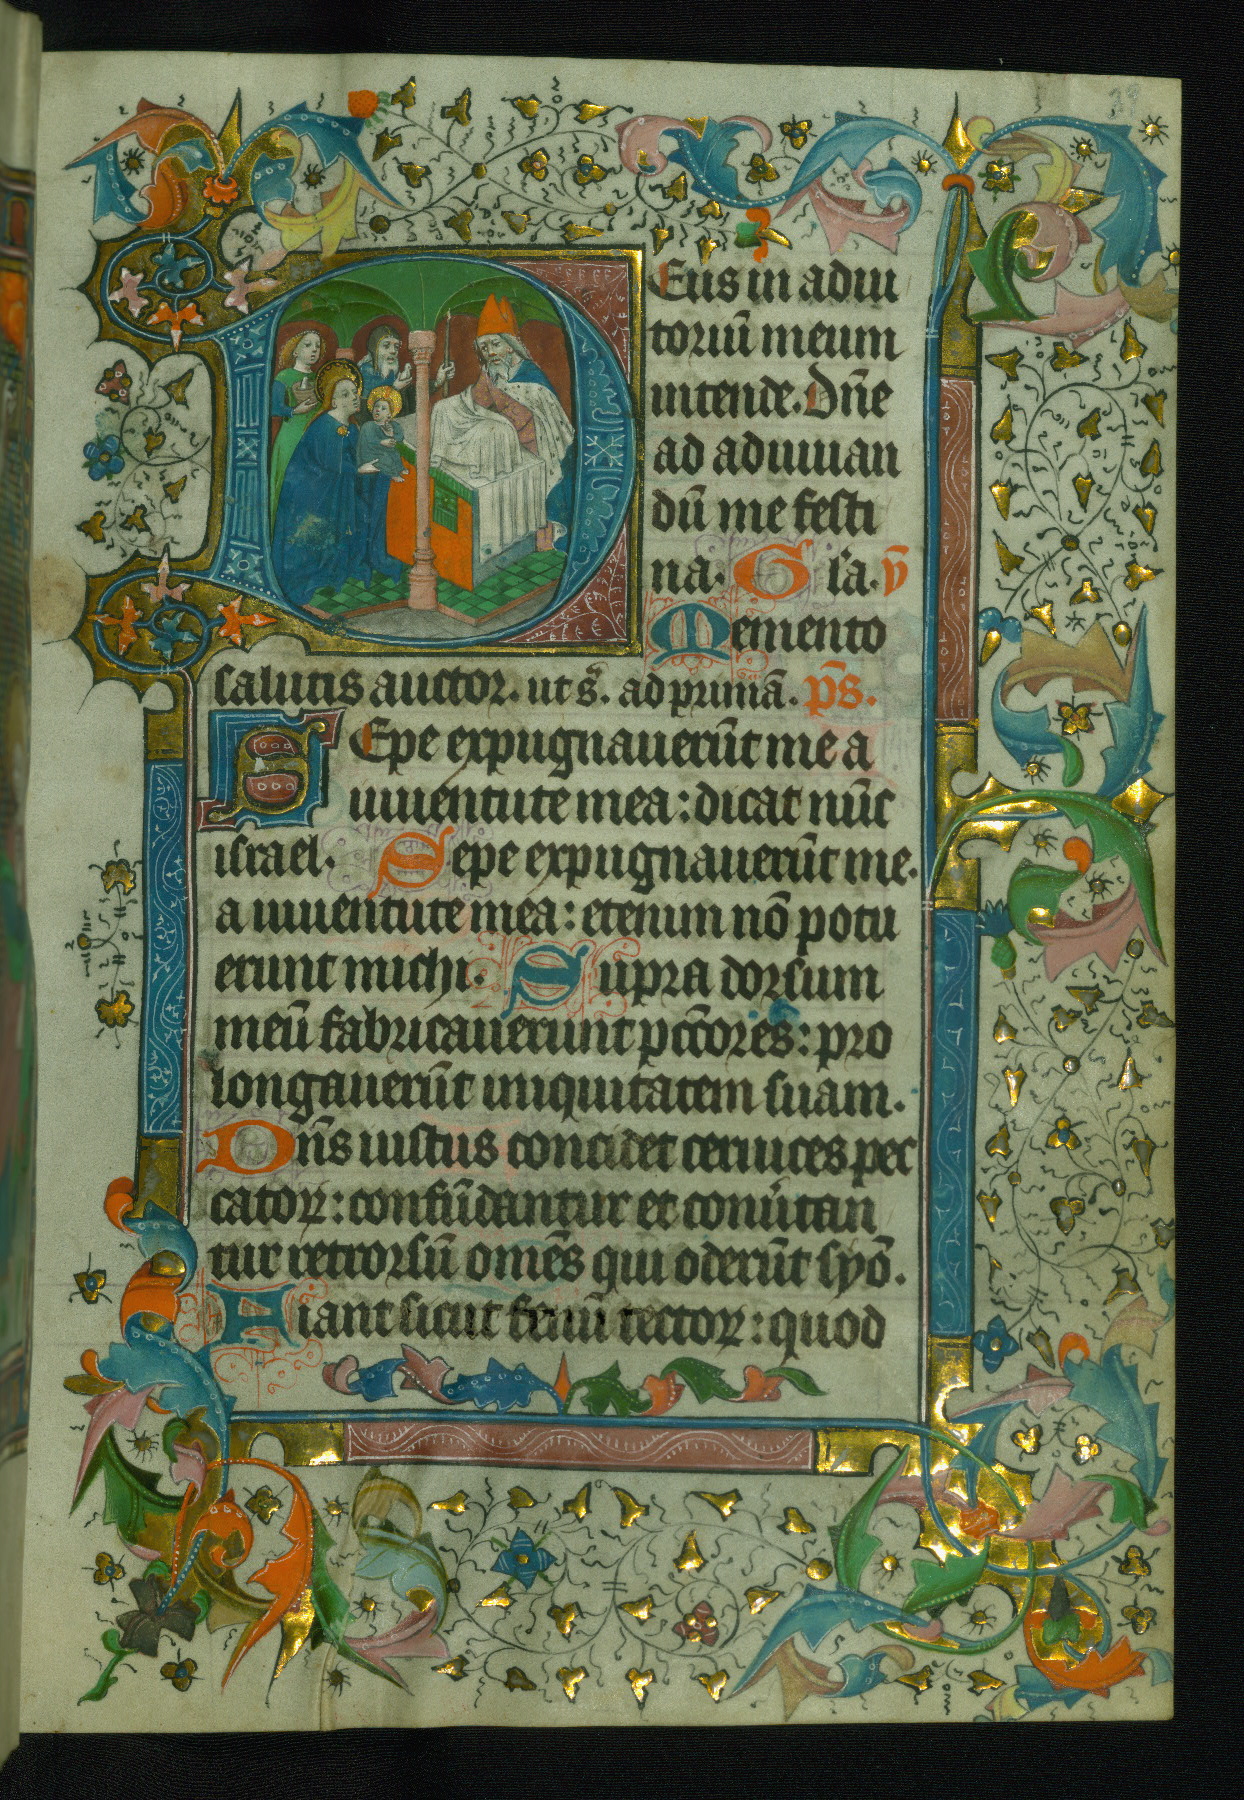 Deus in adiu
toriū meum
intende. Dn̄e
ad adiuuan
dū me festi
na. Gl'ia. v̄
Memento
salutis auctor. ut s̄. ad primā. p̄s.
Sepe expugnauerūt me a
iuuentute mea: dicat nūc
israel. Sepe expugnauerūt me.
a iuuentute mea: etenim nō potu
erunt michi. Supra dorsum
meū fabricauerunt pcc̄ores: pro
longauerūt iniquitatem suam.
Dn̄s iustus concidet ceruices pec
catoꝝ: confūdantur et conu̓tan
tur retrorsū omēs qui oderūt syō.
Fiant sicut fenū tectoꝝ: quod